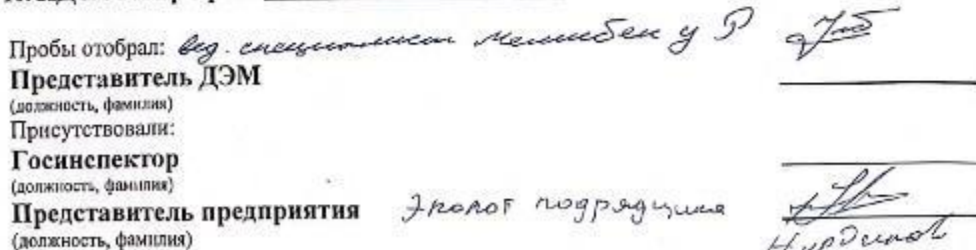 Пробы отобрал: вед. специалист Меллибек у Р
Представитель ДЭМ
(должность, фамилия)
Присутствовали:
Госинспектор
(должность, фамилия)
Представитель предприятия Эколог подрядчика
(должность, фамилия)